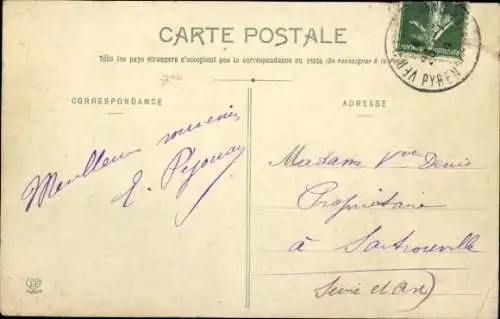 CARTE POSTALE
Tous les pays étrangers n'acceptent pas la correspondance au recto (Se renseigner à la
CORRESPONDANCE
ADRESSE
PYREN
Meilleur souvenir
Madame Vve Denis
Propriétaire
à Sartrouville
(Seine et Oise)